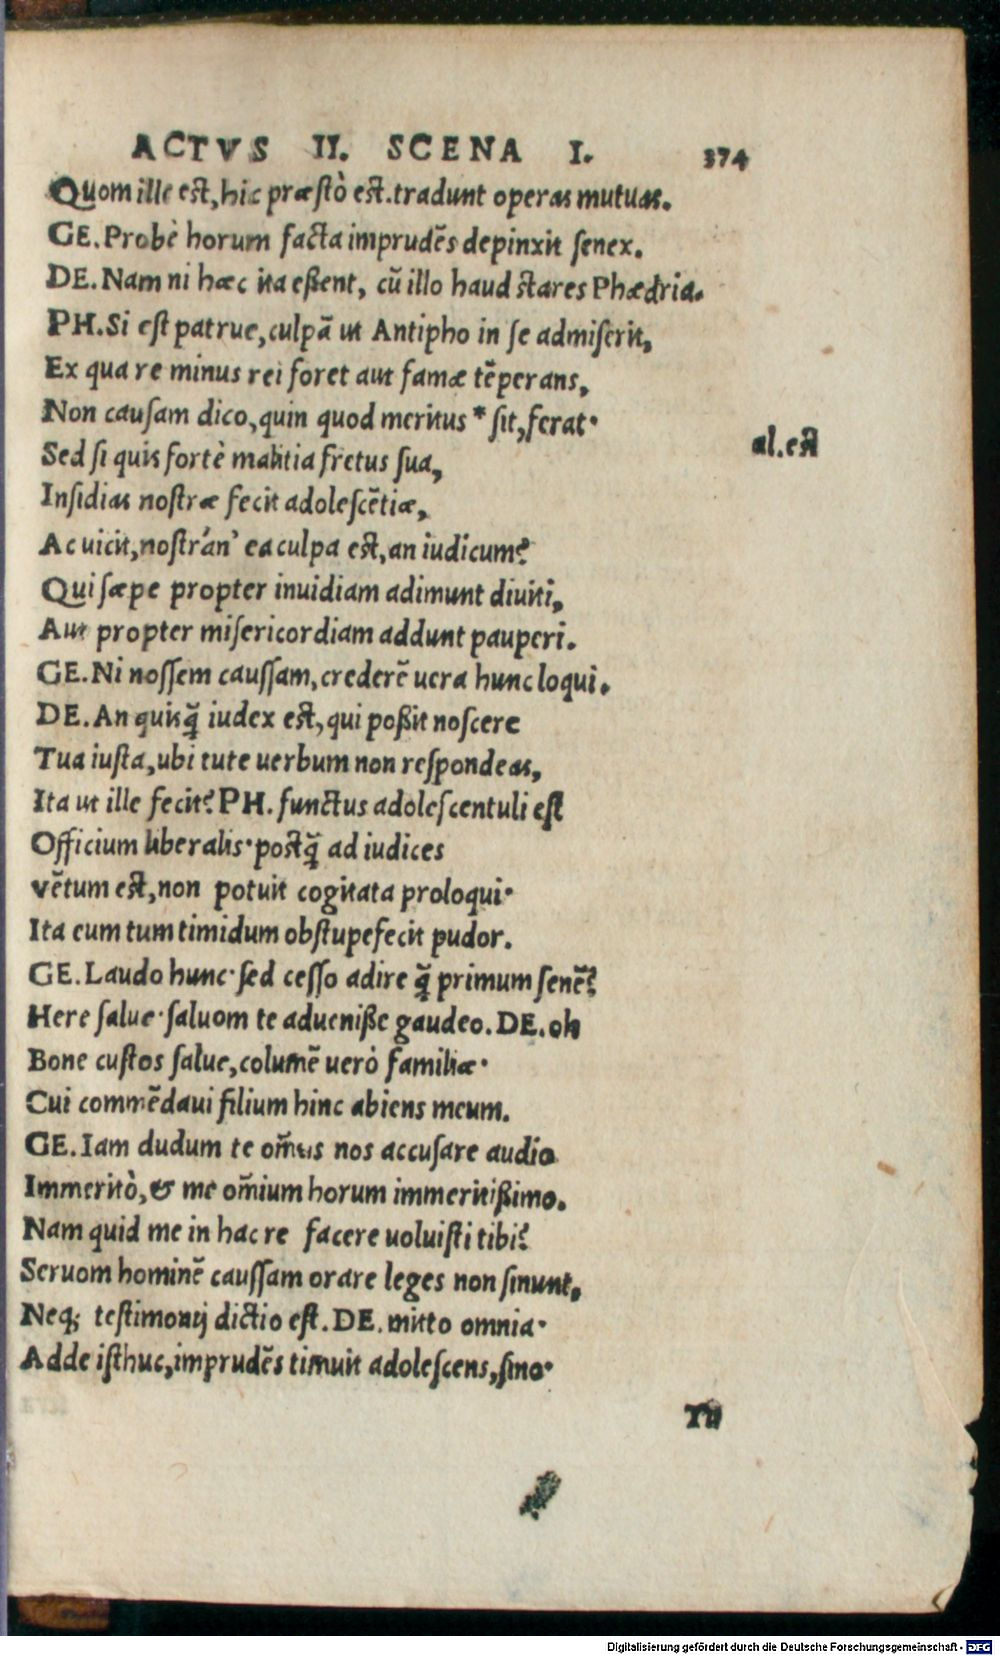 ACTVS II. SCENA I. 374
Quom ille est, hic præstò est. tradunt operas mutuas.
GE. Probè horum facta imprudẽs depinxit senex.
DE. Nam ni hæc ita eßent, cũ illo haud stares Phædria.
PH. Si est patrue, culpã ut Antipho in se admiserit,
Ex qua re minus rei foret aut famæ tẽperans,
Non causam dico, quin quod meritus * sit, ferat·
al. est
Sed si quis fortè malitia fretus sua,
Insidias nostræ fecit adolescẽtiæ,
Ac uicit, nostrán' ea culpa est, an iudicum?
Qui sæpe propter inuidiam adimunt diuiti,
Aut propter misericordiam addunt pauperi.
GE. Ni nossem caussam, crederẽ uera hunc loqui.
DE. An quisq̃ iudex est, qui poßit noscere
Tua iusta, ubi tute uerbum non respondeas,
Ita ut ille fecit? PH. functus adolescentuli est
Officium liberalis· postq̃ ad iudices
vẽtum est, non potuit cogitata proloqui·
Ita eum tum timidum obstupefecit pudor.
GE. Laudo hunc· sed cesso adire q̃ primum senẽ?
Here salue· saluom te adueniße gaudeo. DE. oh
Bone custos salue, columẽ uerò familiæ·
Cui commẽdaui filium hinc abiens meum.
GE. Iam dudum te om̃es nos accusare audio
Immeritò, & me om̃ium horum immeritißimo.
Nam quid me in hac re facere uoluisti tibi?
Seruom hominẽ caussam orare leges non sinunt,
Neq; testimonij dictio est. DE. mitto omnia·
Adde isthuc, imprudẽs timuit adolescens, sino·
Tu
Digitalisierung gefördert durch die Deutsche Forschungsgemeinschaft - DFG